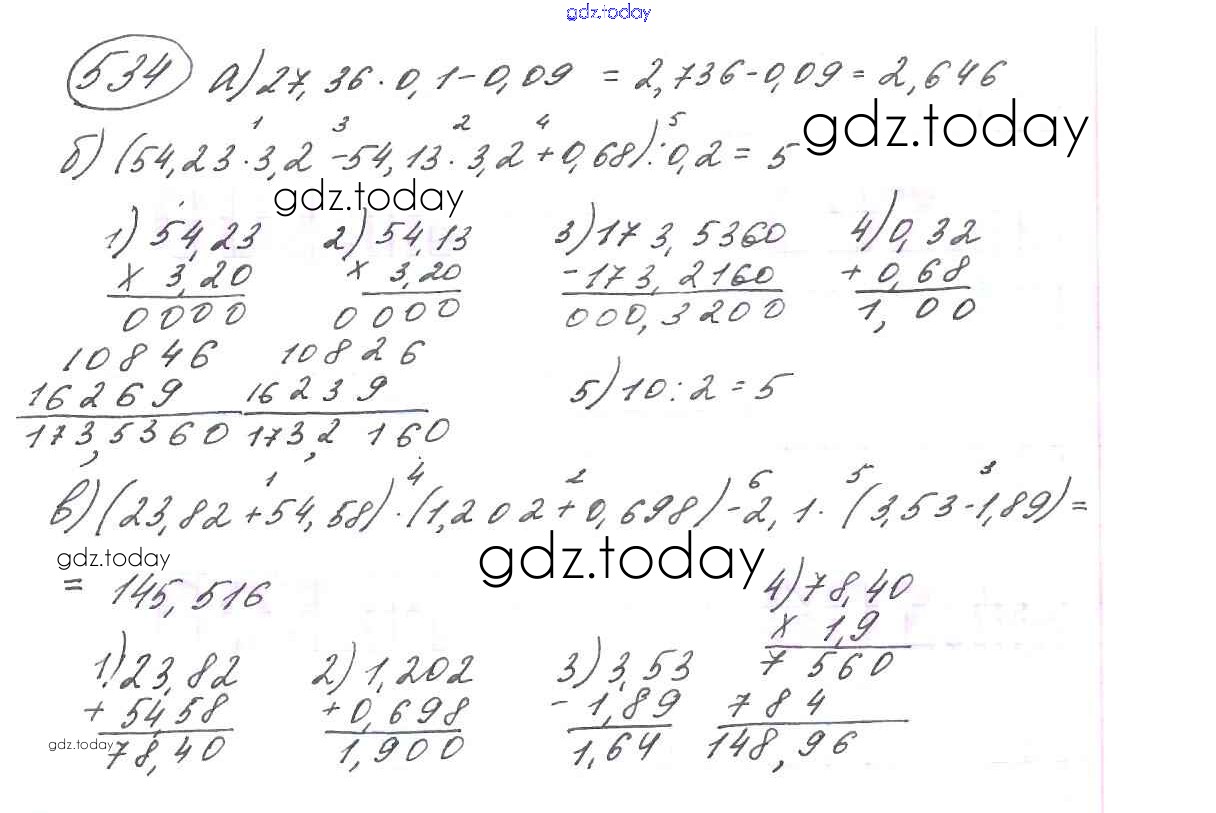 gdz.today
534 а) 27,36 · 0,1 - 0,09 = 2,736 - 0,09 = 2,646
gdz.today
1 3 2 4 5
б) (54,23 · 3,2 - 54,13 · 3,2 + 0,68) : 0,2 = 5
gdz.today
1) 54,23 2) 54,13 3) 173,5360 4) 0,32
× 3,20 × 3,20 - 173,2160 + 0,68
0000 0000 000,3200 1,00
10846 10826
16269 16239 5) 10 : 2 = 5
173,5360 173,2160
1 4 2 6 5 3
в) (23,82 + 54,58) · (1,202 + 0,698) - 2,1 · (3,53 - 1,89) =
gdz.today gdz.today
= 145,516 4) 78,40
× 1,9
1) 23,82 2) 1,202 3) 3,53 7560
+ 54,58 + 0,698 - 1,89 784
gdz.today 78,40 1,900 1,64 148,96